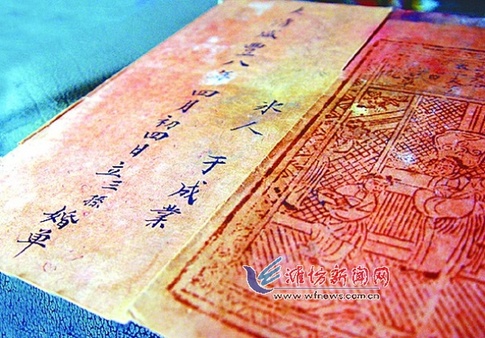 氷人 于成業
大清咸豐八年 四月初四日 立三孫 婚單
潍坊新闻网
www.wfnews.com.cn